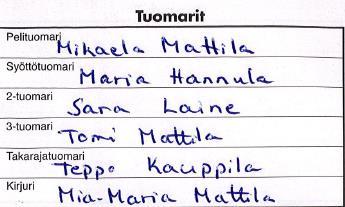 Tuomarit
Pelituomari Mikaela Mattila
Syöttötuomari Maria Hannula
2-tuomari Sara Laine
3-tuomari Tomi Mattila
Takarajatuomari Teppo Kauppila
Kirjuri Mia-Maria Mattila